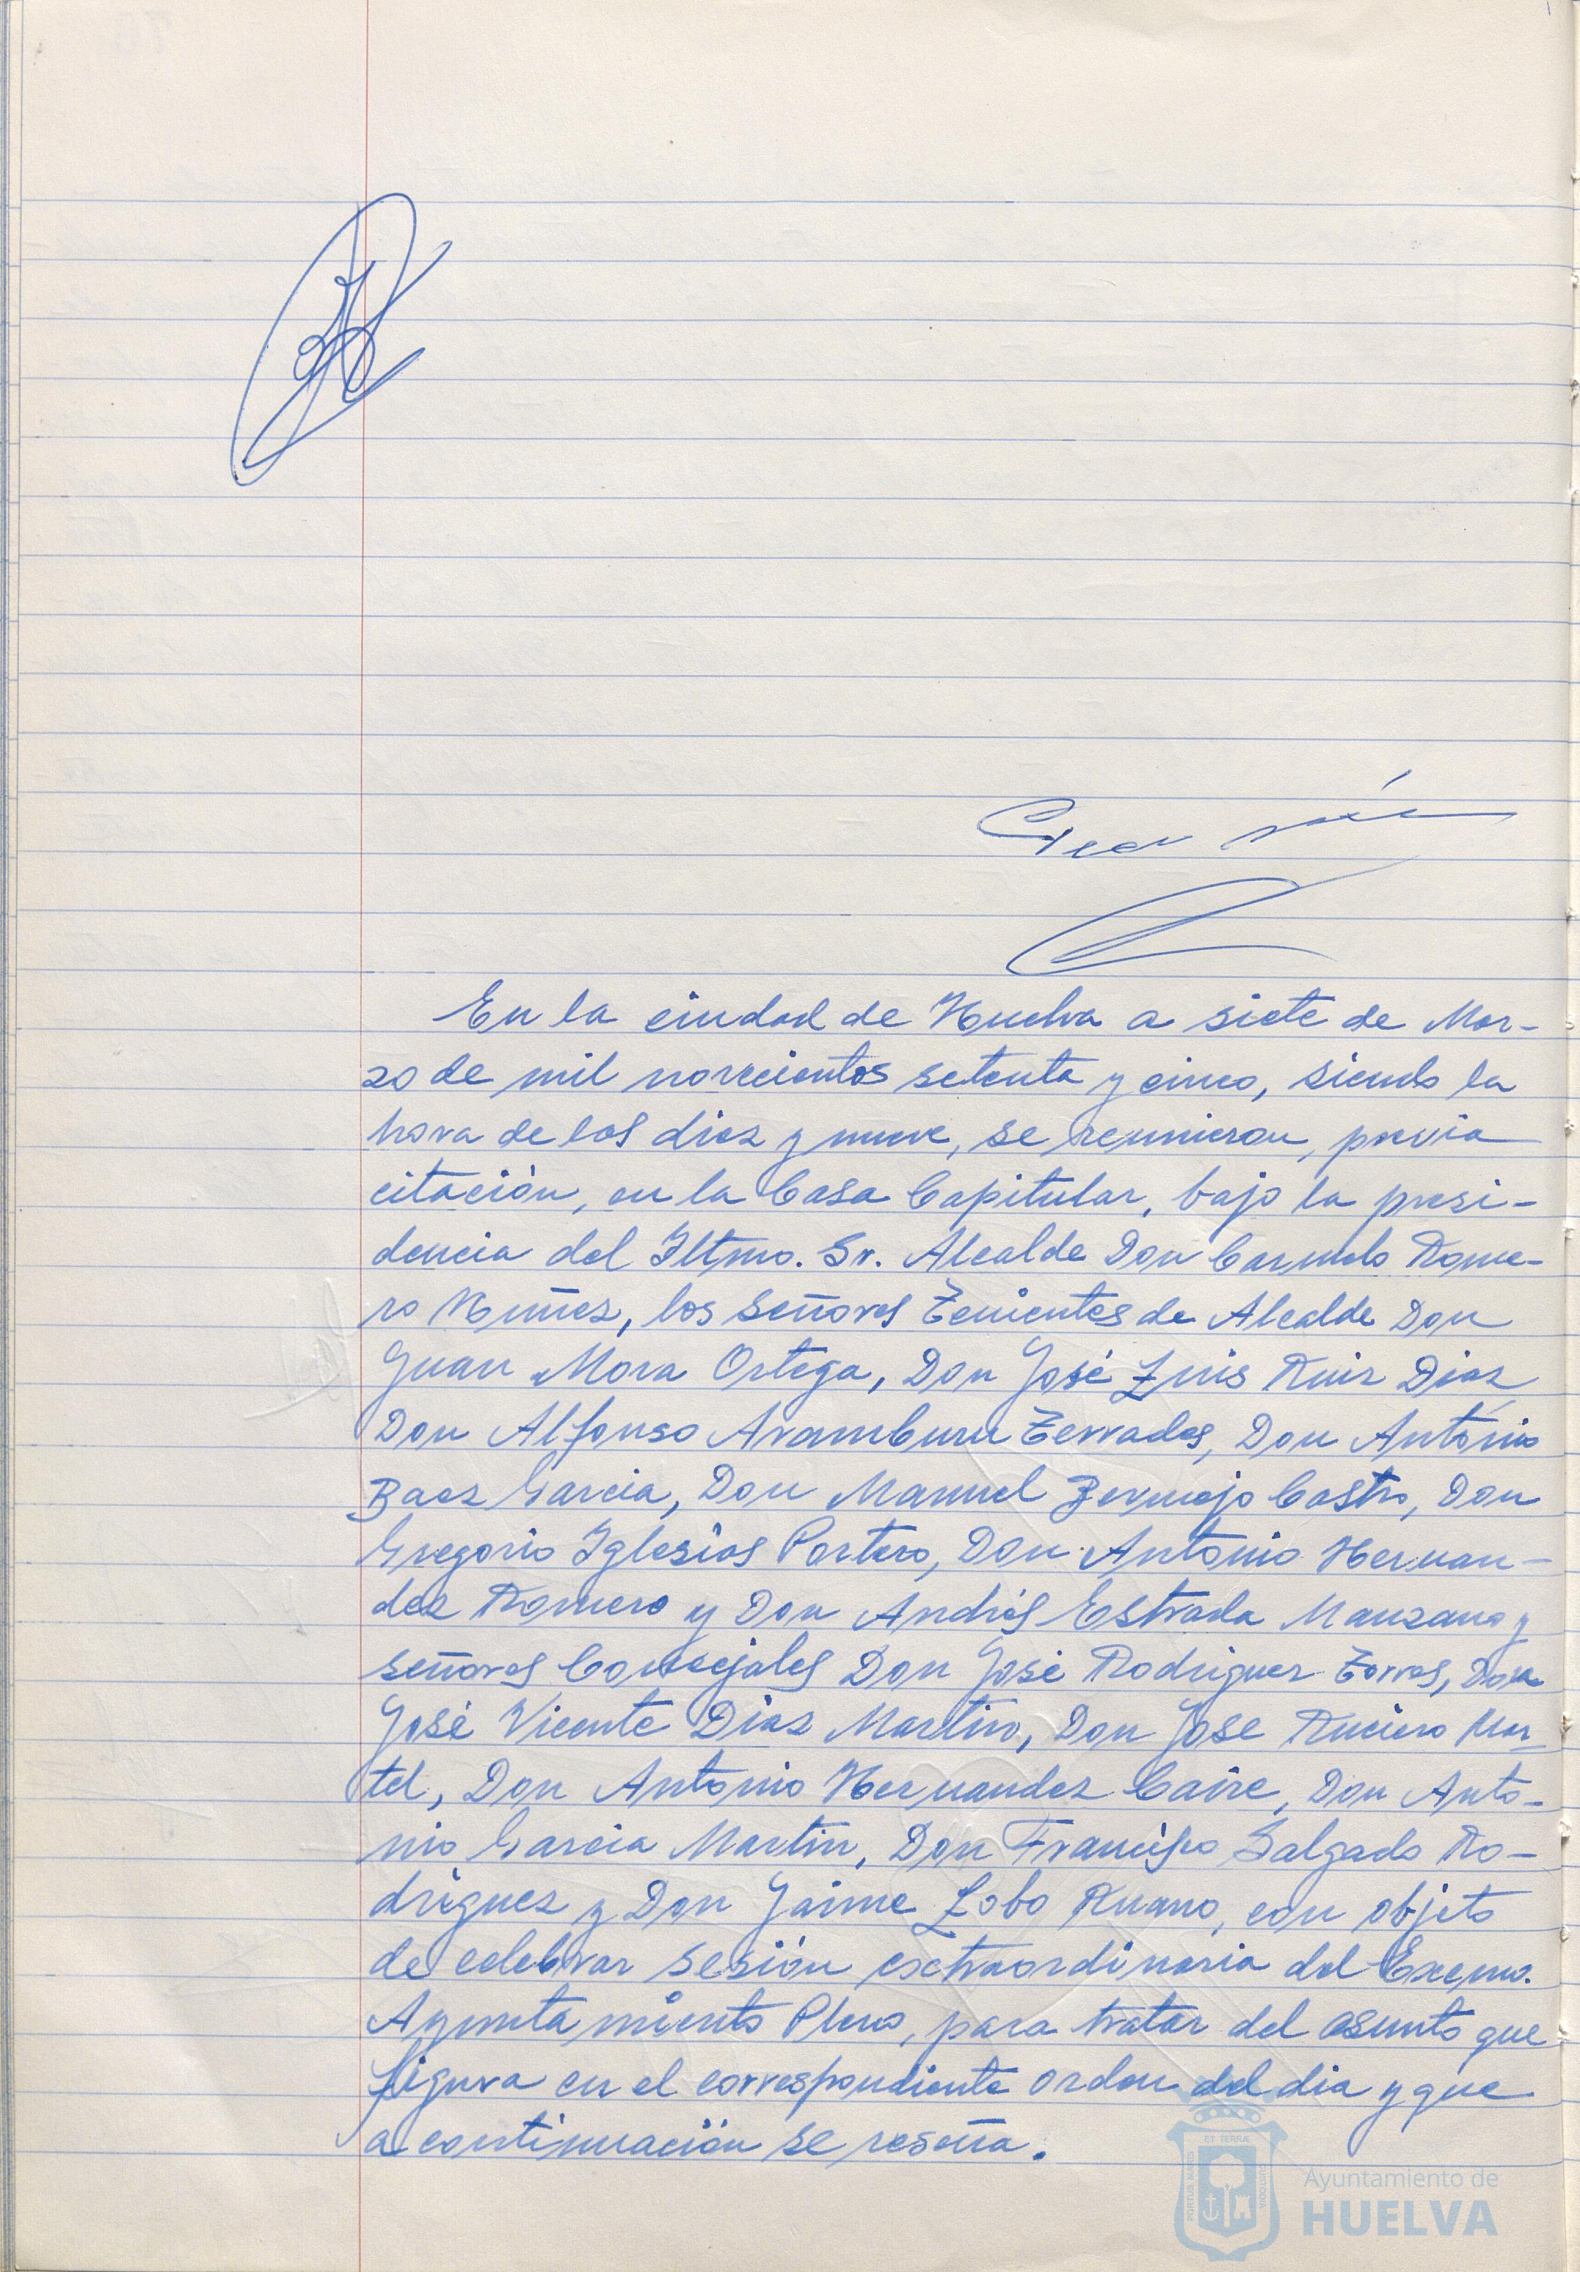 En la ciudad de Huelva a siete de Mar-
zo de mil novecientos setenta y cinco, siendo la
hora de las diez y nueve, se reunieron, previa
citación, en la Casa Capitular, bajo la presi-
dencia del Iltmo. Sr. Alcalde Don Carmelo Rome-
ro Nuñez, los señores Tenientes de Alcalde Don
Juan Mora Ortega, Don José Luis Ruiz Diaz,
Don Alfonso Aramburu Terrades, Don Antonio
Baez Garcia, Don Manuel Bermejo Castro, Don
Gregorio Iglesias Portero, Don Antonio Hernan-
dez Romero y Don Andrés Estrada Manzano y
señores Concejales Don José Rodriguez Torres, Don
José Vicente Diaz Martin, Don José Ruciero Mar-
tel, Don Antonio Hernandez Caire, Don Anto-
nio Garcia Martin, Don Francisco Salgado Ro-
driguez y Don Jaime Lobo Ruano, con objeto
de celebrar sesión extraordinaria del Excmo.
Ayuntamiento Pleno, para tratar del asunto que
figura en el correspondiente orden del dia y que
a continuación se reseña.
ET TERRÆ
PORTUS MARIS
CUSTODIA
Ayuntamiento de
HUELVA